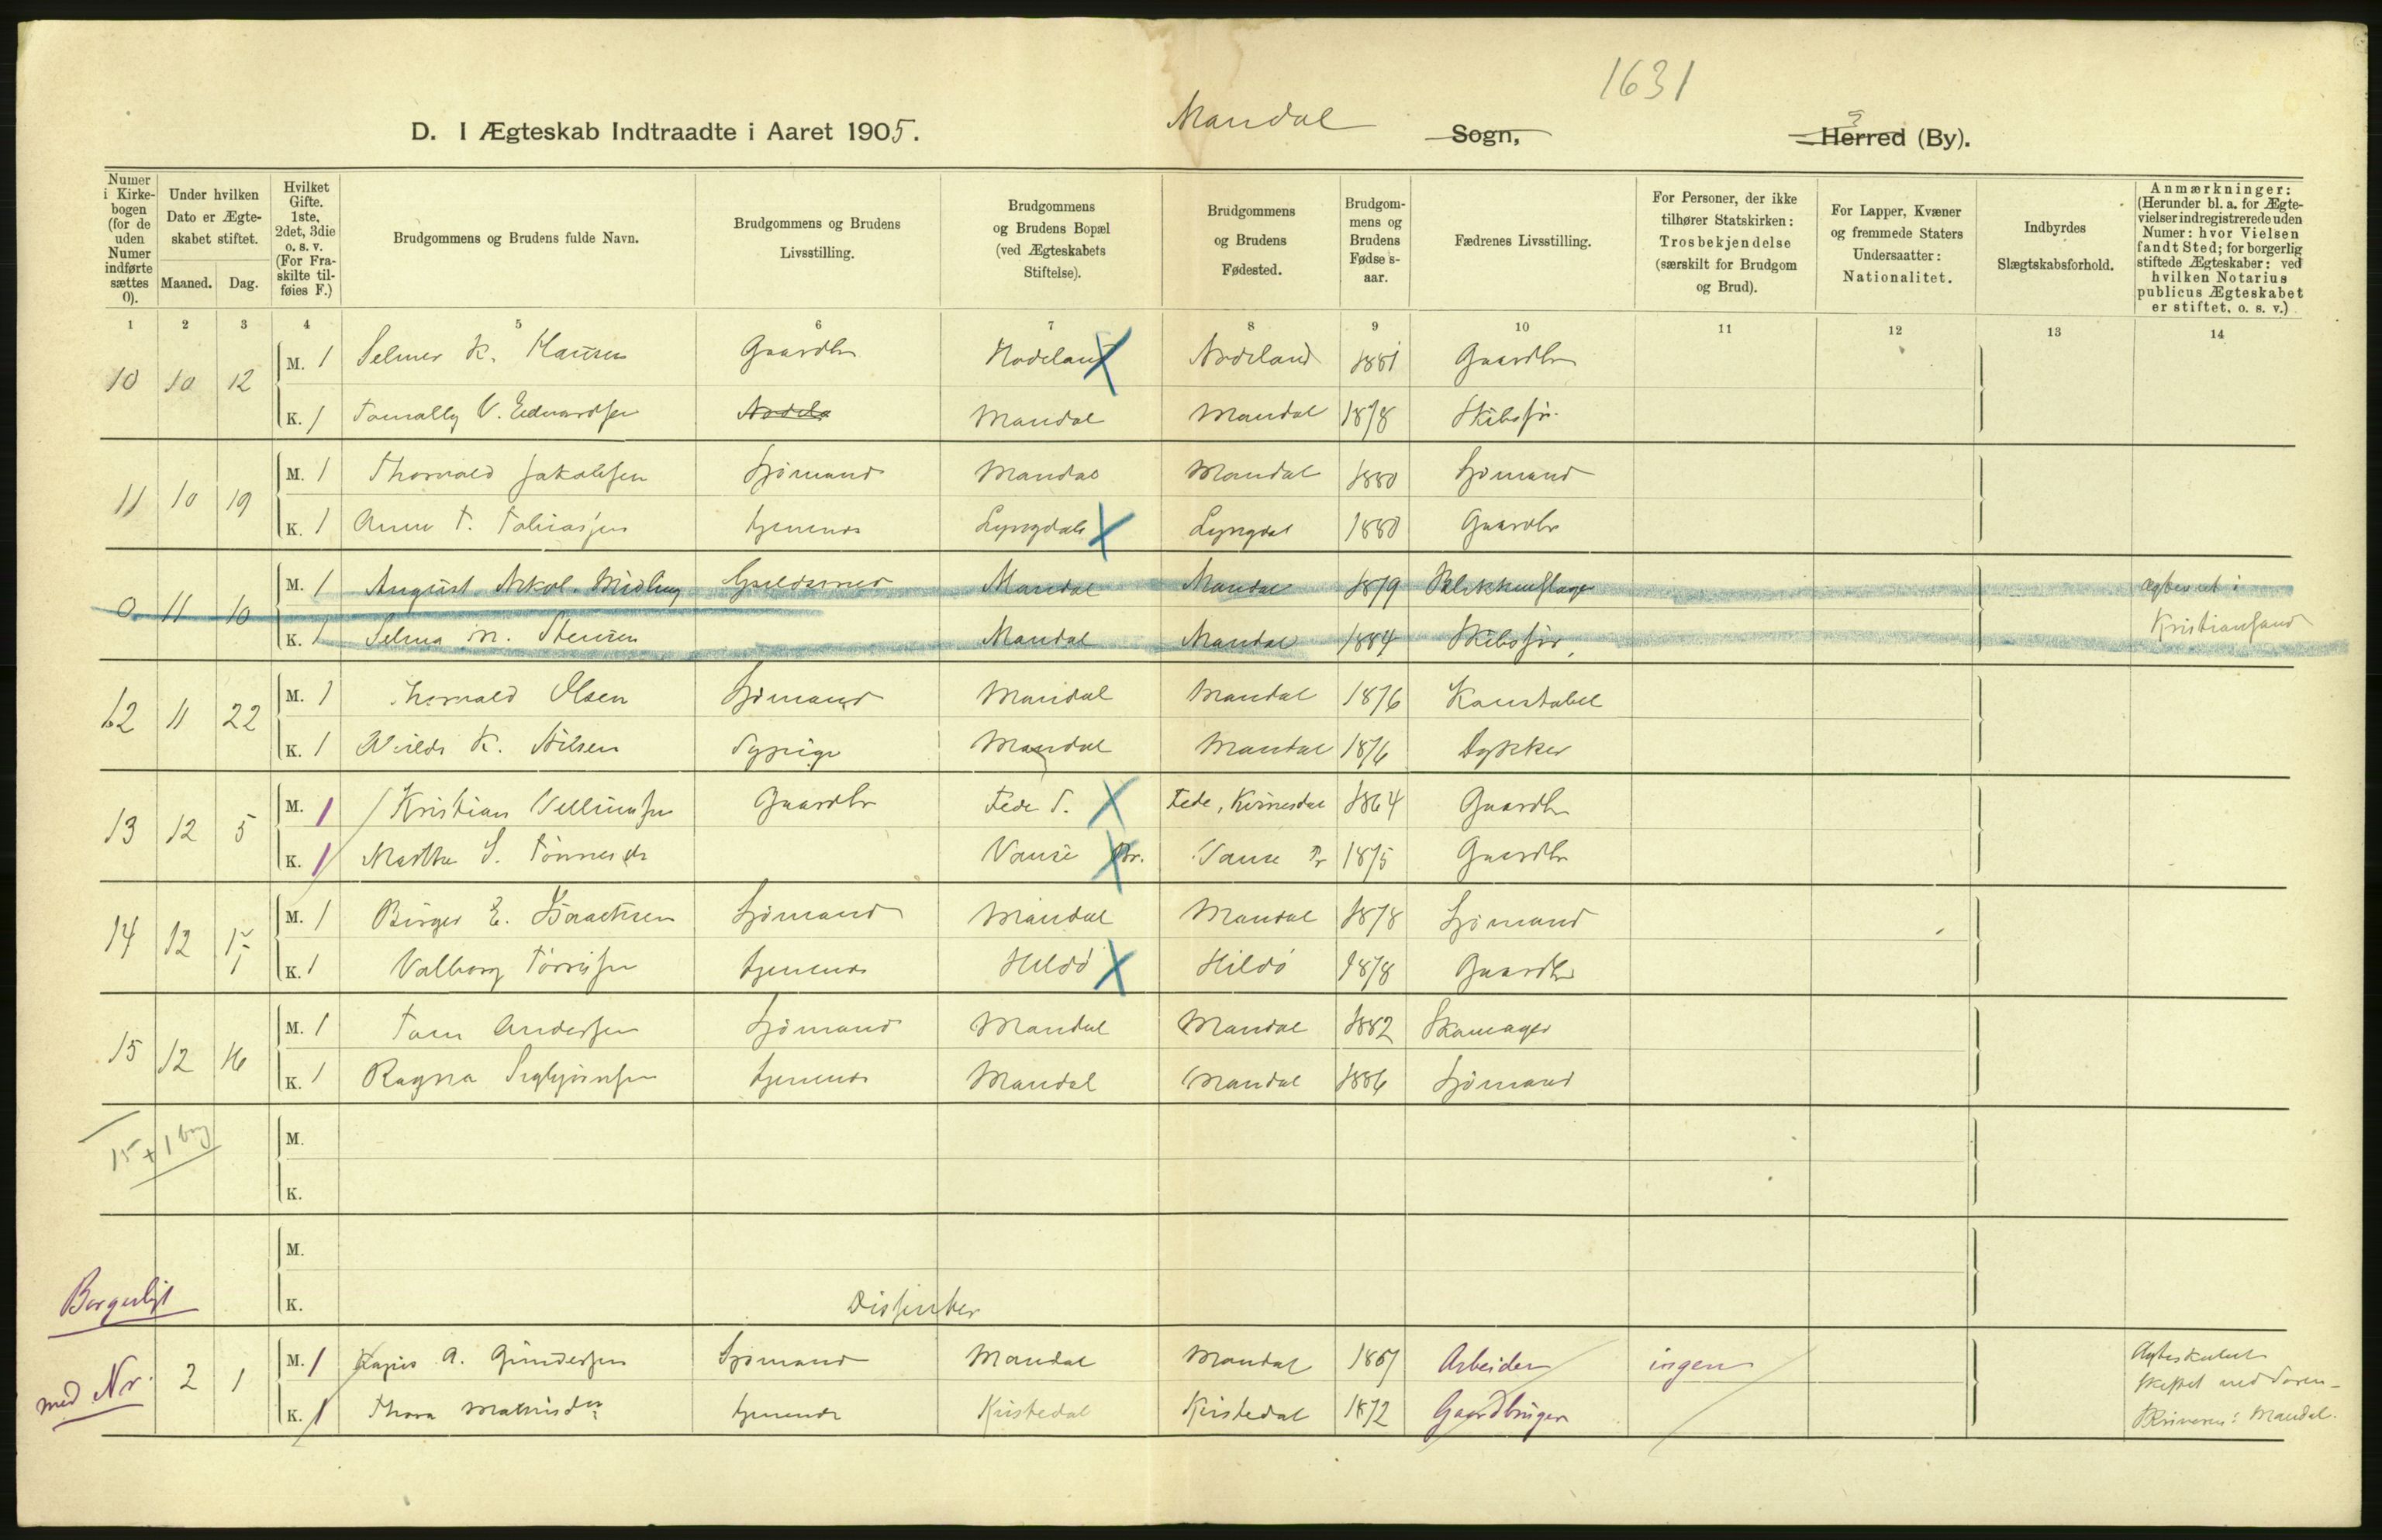 1631
D. I Ægteskab Indtraadte i Aaret 1905. Mandal Sogn, Herred (By).
Numer i Kirkebogen (for de uden Numer indførte sættes 0).
Under hvilken Dato er Ægteskabet stiftet.
Maaned. Dag.
Hvilket Gifte. 1ste, 2det, 3die o. s. v. (For Fraskilte tilføies F.)
Brudgommens og Brudens fulde Navn.
Brudgommens og Brudens Livsstilling.
Brudgommens og Brudens Bopæl (ved Ægteskabets Stiftelse).
Brudgommens og Brudens Fødested.
Brudgommens og Brudens Fødselsaar.
Fædrenes Livsstilling.
For Personer, der ikke tilhører Statskirken: Trosbekjendelse (særskilt for Brudgom og Brud).
For Lapper, Kvæner og fremmede Staters Undersaatter: Nationalitet.
Indbyrdes Slægtskabsforhold.
Anmærkninger: (Herunder bl. a. for Ægtevielser indregistrerede uden Numer: hvor Vielsen fandt Sted; for borgerlig stiftede Ægteskaber: ved hvilken Notarius publicus Ægteskabet er stiftet, o. s. v.)
1 2 3 4 5 6 7 8 9 10 11 12 13 14
10 10 12 M. 1 Selmer K. Hansen Gaardbr Nodeland Nodeland 1881 Gaardbr
K. 1 V. Edvardsen Mandal Mandal 1878 Skibsfør.
11 10 19 M. 1 Thorvald Jakobsen Sjømand Mandal Mandal 1880 Sjømand
K. 1 Anne T. Tobiassen tjenende Lyngdal Lyngdal 1880 Gaardbr
0 11 10 M. 1 August Mandal Mandal 1879 Blikkenslager
K. 1 Selma M. Mandal Mandal 1884 Skibsfør. Kristiansand
12 11 22 M. 1 Thorvald Olsen Sjømand Mandal Mandal 1876 Konstabel
K. 1 K. Nilsen Sypige Mandal Mandal 1876 Dykker
13 12 5 M. 1 Kristian Gaardbr Fede S. Fede, Kvinesdal 1864 Gaardbr
K. 1 Martha S. Tønnesdr Vanse Pr. Vanse Pr 1875 Gaardbr
14 12 15 M. 1 Birger E. Isaachsen Sjømand Mandal Mandal 1878 Sjømand
K. 1 Valborg Tørrisen tjenende Hildø Hildø 1878 Gaardbr
15 12 16 M. 1 Tom Andersen Sjømand Mandal Mandal 1882 Skomager
K. 1 Ragna Sigbjørnsen tjenende Mandal Mandal 1886 Sjømand
15 + 1 borg
M.
K.
M.
Borgerligt K. Dissenter
med Nr. 2 1 M. 1 A. Gundersen Sjømand Mandal Mandal 1867 Arbeider ingen
K. 1 Thora tjenende 1872 Gaardbruger
Mandal.